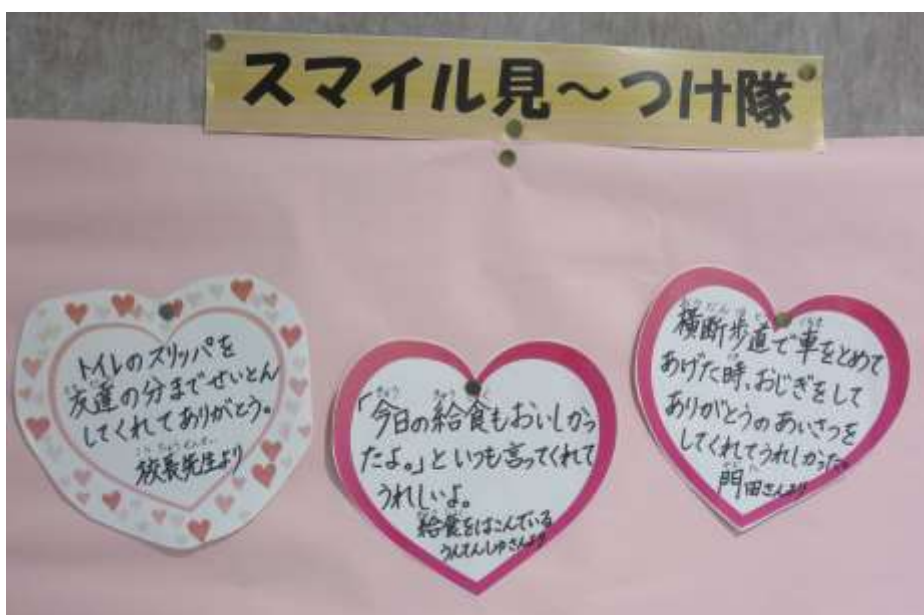 スマイル見～つけ隊
トイレのスリッパを
友達の分までせいとん
してくれてありがとう。
校長先生より
「今日の給食もおいしかっ
たよ。」といつも言ってくれて
うれしいよ。
給食をはこんでいる
うんてんしゅさんより
横断歩道で車をとめて
あげた時、おじぎをして
ありがとうのあいさつを
してくれてうれしかった。
門田さんより